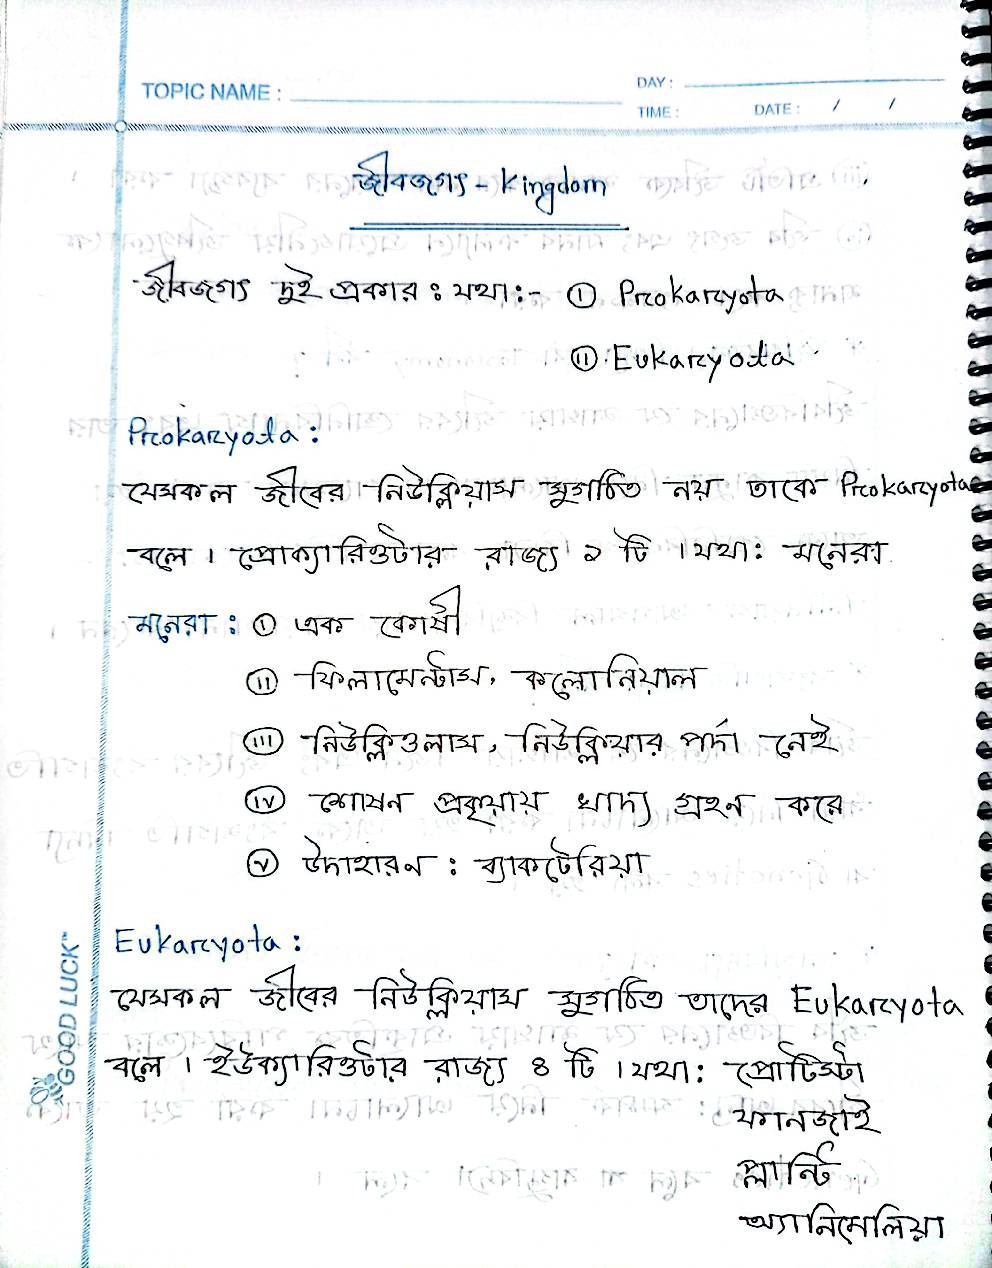 TOPIC NAME :
DAY :
TIME :
DATE : / /
জীবজগৎ - Kingdom
জীবজগৎ দুই প্রকার ঃ যথা:- ⓘ Prokaryota
ⓘⓘ Eukaryota
Prokaryota :
যেসকল জীবের নিউক্লিয়াস সুগঠিত নয় তাকে Prokaryota
বলে । প্রোক্যারিওটার রাজ্য ১ টি । যথা: মনেরা
মনেরা : ⓘ এক কোষী
(ii) ফিলামেন্টাস, কলোনিয়াল
(iii) নিউক্লিওলাস, নিউক্লিয়ার পর্দা নেই
(iv) শোষন প্রকৃয়ায় খাদ্য গ্রহন করে
(v) উদাহারন : ব্যাকটেরিয়া
Eukaryota :
যেসকল জীবের নিউক্লিয়াস সুগঠিত তাদের Eukaryota
বলে । ইউক্যারিওটার রাজ্য ৪ টি । যথা: প্রোটিস্টা
ফানজাই
প্লান্টি
অ্যানিমেলিয়া
GOOD LUCK™